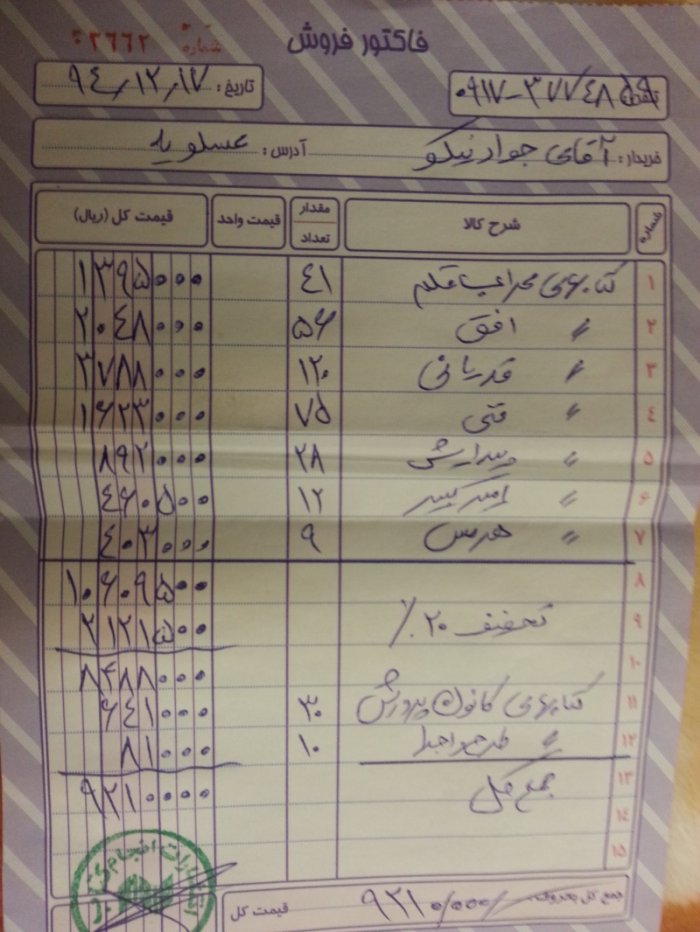 فاکتور فروش
شماره ۲۶۶۲
تلفن: ۰۹۱۷-۳۷۷۴۸۵۹ تاریخ: ۹۴/۱۲/۱۷
خریدار: آقای جواد نیکو آدرس: عسلویه
شماره شرح کالا مقدار تعداد قیمت واحد قیمت کل (ریال)
۱ کتابهای محراب قلم ۴۱ ۱۳۹۵۰۰۰
۲ " افق ۵۶ ۲۰۴۸۰۰۰
۳ " قدیانی ۱۲۰ ۳۷۸۸۰۰۰
۴ " فنی ۷۵ ۱۶۲۳۰۰۰
۵ " ۲۸ ۸۹۲۰۰۰
۶ " امیرکبیر ۱۲ ۴۶۰۵۰۰
۷ " ۹ ۴۰۳۰۰۰
۸ ۱۰۶۰۹۵۰۰
۹ تخفیف ۲۰٪ ۲۱۲۱۵۰۰
۱۰ ۸۴۸۸۰۰۰
۱۱ کتابهای کانون پرورش ۳۰ ۶۴۱۰۰۰
۱۲ " طرح و اجرا ۱۰ ۸۱۰۰۰
۱۳ جمع کل ۹۲۱۰۰۰۰
۱۴
۱۵
جمع کل بحروف: ۹۲۱۰/۰۰۰/ قیمت کل
انتشارات انجام کتاب